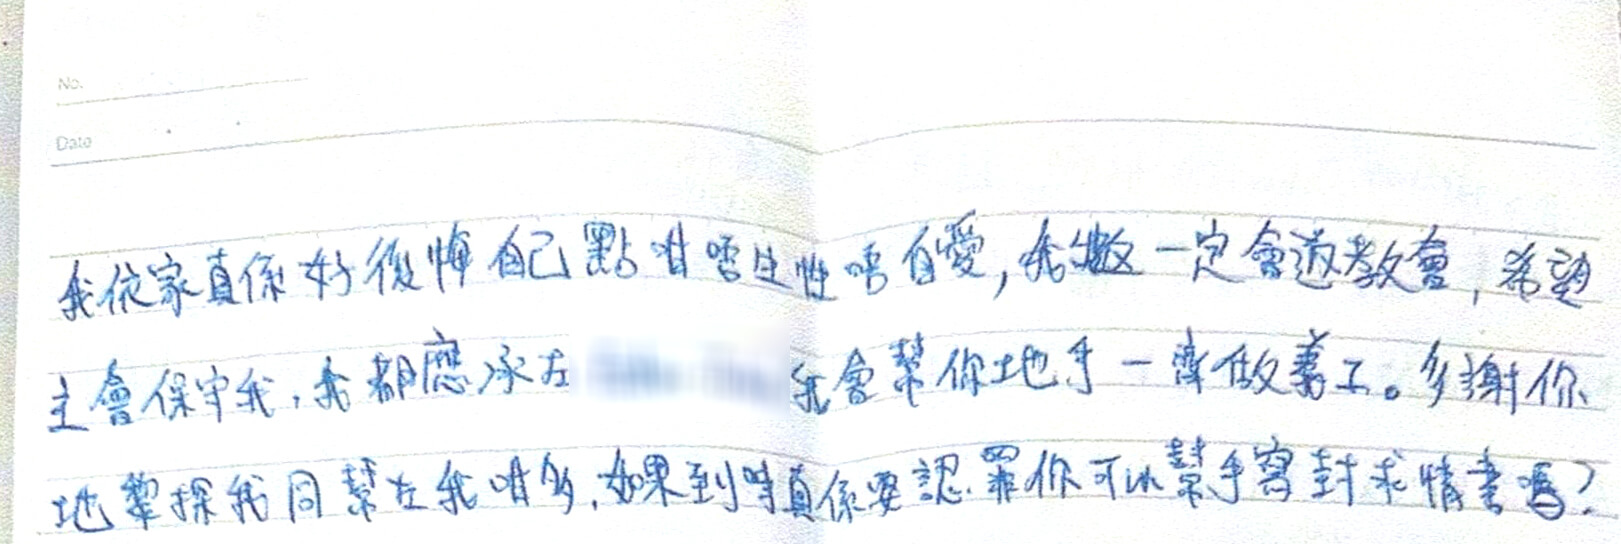 No.
Date
我依家真係好後悔自己點咁唔生性唔自愛,我一定會返教會,希望
主會保守我,我都應承左 我會幫你地手一齊做義工。多謝你
地黎探我同幫左我咁多,如果到時真係要認罪你可以幫手寫封求情書嗎?